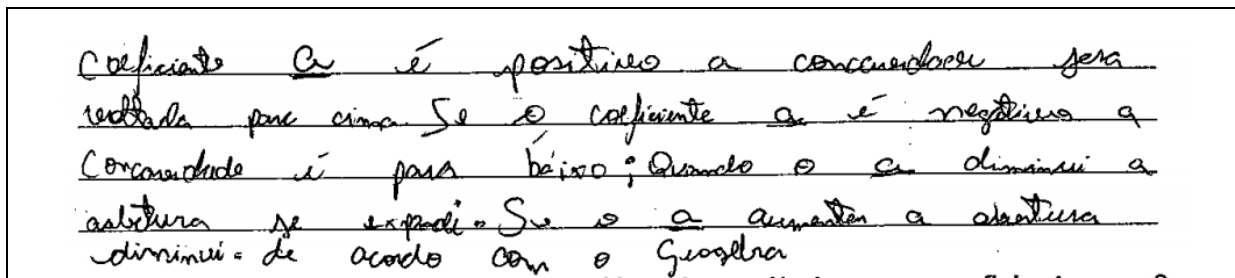 Coeficiente a é positivo a concavidade sera
voltada para cima. Se o coeficiente a é negativo a
Concavidade é para báixo; Quando o a diminui a
abertura se expadi. Se o a aumentar a abertura
diminui. de acordo com o Geogebra